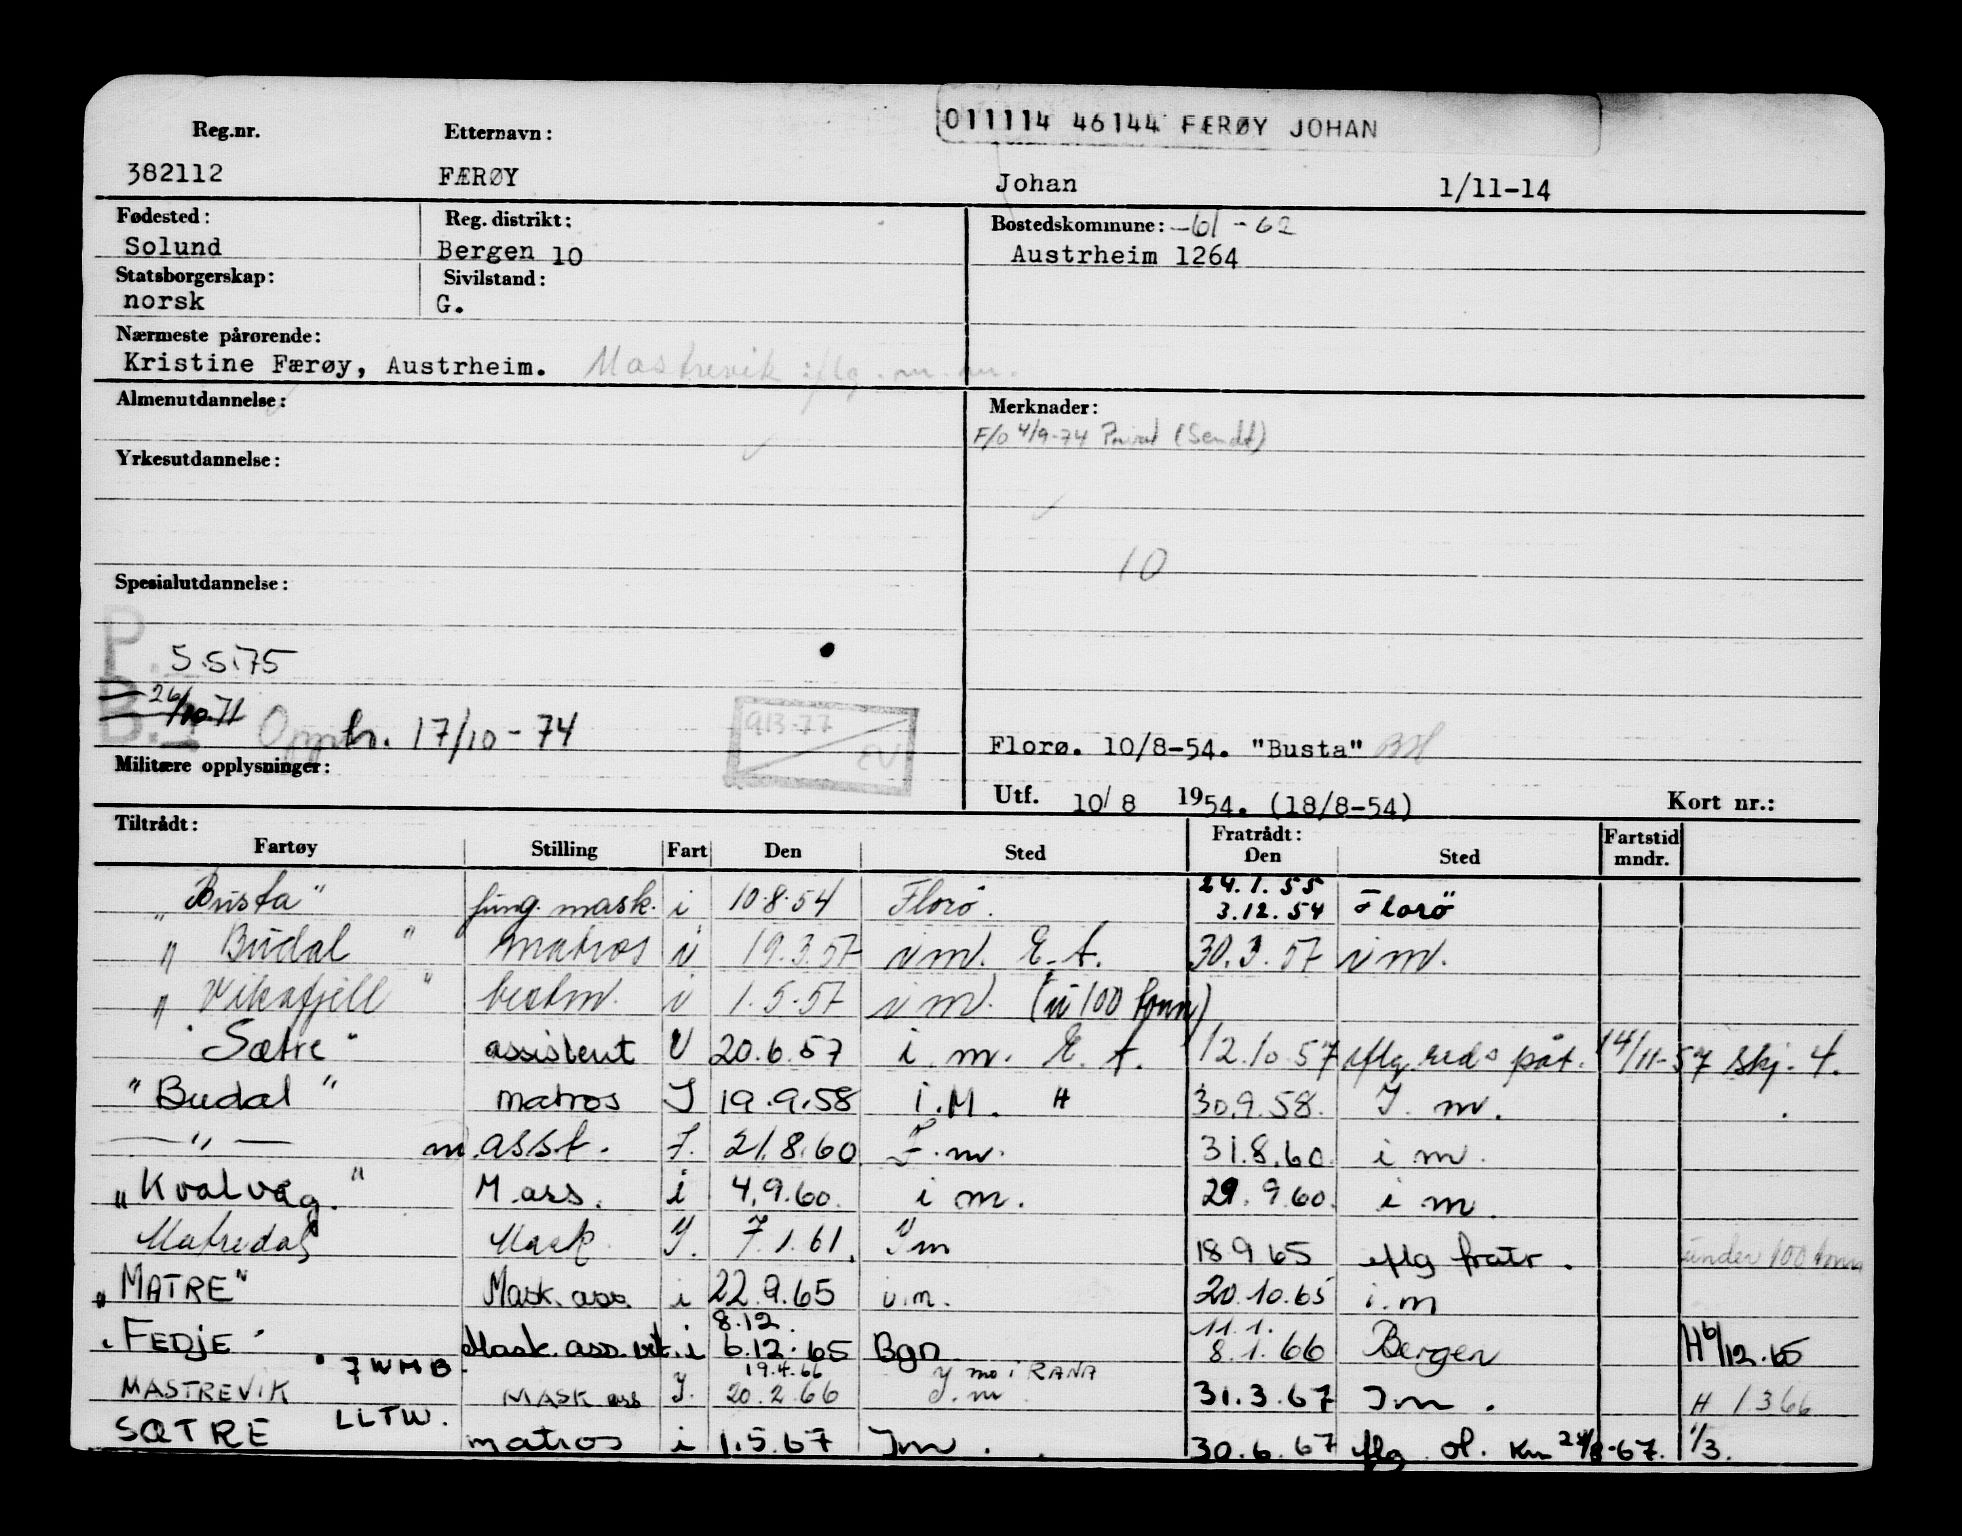 011114 46144 FÆRØY JOHAN
Reg.nr. Etternavn:
382112 FÆRØY Johan 1/11-14
Fødested: Reg. distrikt: Bostedskommune: -61 -62
Solund Bergen 10 Austrheim 1264
Statsborgerskap: Sivilstand:
norsk G.
Nærmeste pårørende:
Kristine Færøy, Austrheim. Mastrevik iflg. m.m.
Almenutdannelse: Merknader:
F/o 4/9-74 Privat (Sendt)
Yrkesutdannelse:
10
Spesialutdannelse:
P.
5.5.75
26/10-71
B.1 Opph. 17/10-74
913-77
EU
Florø. 10/8-54. "Busta"
Militære opplysninger:
Utf. 10/8 1954. (18/8-54) Kort nr.:
Tiltrådt: Fratrådt: Fartstid
Fartøy Stilling Fart Den Sted Den Sted mndr.
24.1.55
"Busta" fung. mask. i 10.8.54 Florö. 3.12.54 Florö
"Budal" matros i 19.3.57 i m. E.A. 30.3.57 i m.
"Vikafjell" bestm. i 1.5.57 i m. (u 100 tonn)
"Sætre" assistent U 20.6.57 i. m. E. A. 12.10.57 iflg. red.s påt. 14/11-57 skj. 4.
"Budal" matros I 19.9.58 i.M. H 30.9.58. I. m.
— " — m.asst. I. 21.8.60 I.m. 31.8.60. i m.
"Kvalvåg." M.ass. i 4.9.60. i m. 29.9.60. i m.
Matredal Mask. I. 7.1.61. Im 18.9.65 iflg fratr. under 100 tonn
"MATRE" Mask. ass. i 22.9.65 i.m. 20.10.65 i.m
8.12. 11.1.
"FEDJE" Mask. ass. vik. i 6.12.65 Bgn 8.1.66 Bergen H 6/12.65
7WMB. 19.4.66 y mo i RANA
MASTREVIK MASK ass I. 20.2.66 I.m 31.3.67 Im. H 1366
LLTW.
SÆTRE matros i 1.5.67 Im. 30.6.67 iflg. ol. 1/3.